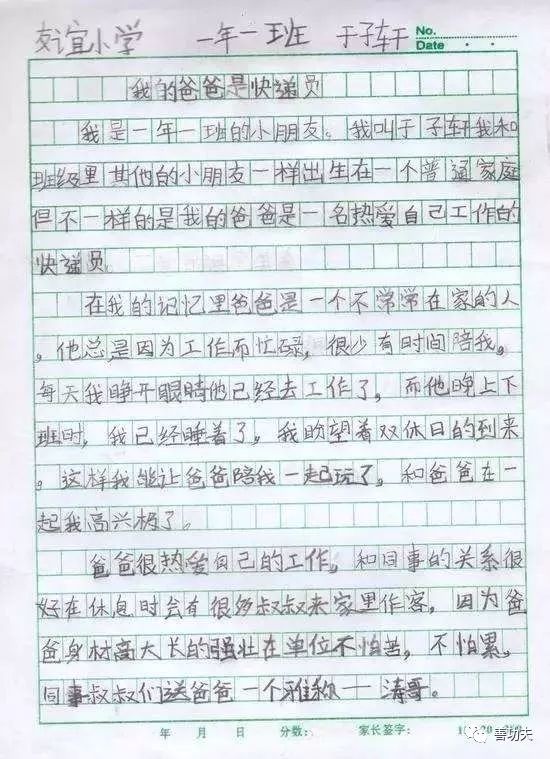 友谊小学 一年一班 于子轩 No.
Date
我的爸爸是快递员
我是一年一班的小朋友。我叫于子轩我和
班级里其他的小朋友一样出生在一个普通家庭
但不一样的是我的爸爸是一名热爱自己工作的
快递员。
在我的记忆里爸爸是一个不常常在家的人
。他总是因为工作而忙碌，很少有时间陪我。
每天我睁开眼睛他已经去工作了，而他晚上下
班时，我已经睡着了，我盼望着双休日的到来
。这样我能让爸爸陪我一起玩了，和爸爸在一
起我高兴极了。
爸爸很热爱自己的工作，和同事的关系很
好在休息时会有很多叔叔来家里作客，因为爸
爸身材高大长的强壮在单位不怕苦，不怕累。
同事叔叔们送爸爸一个雅称一涛哥。
年 月 日 分数： 家长签字：
善功夫